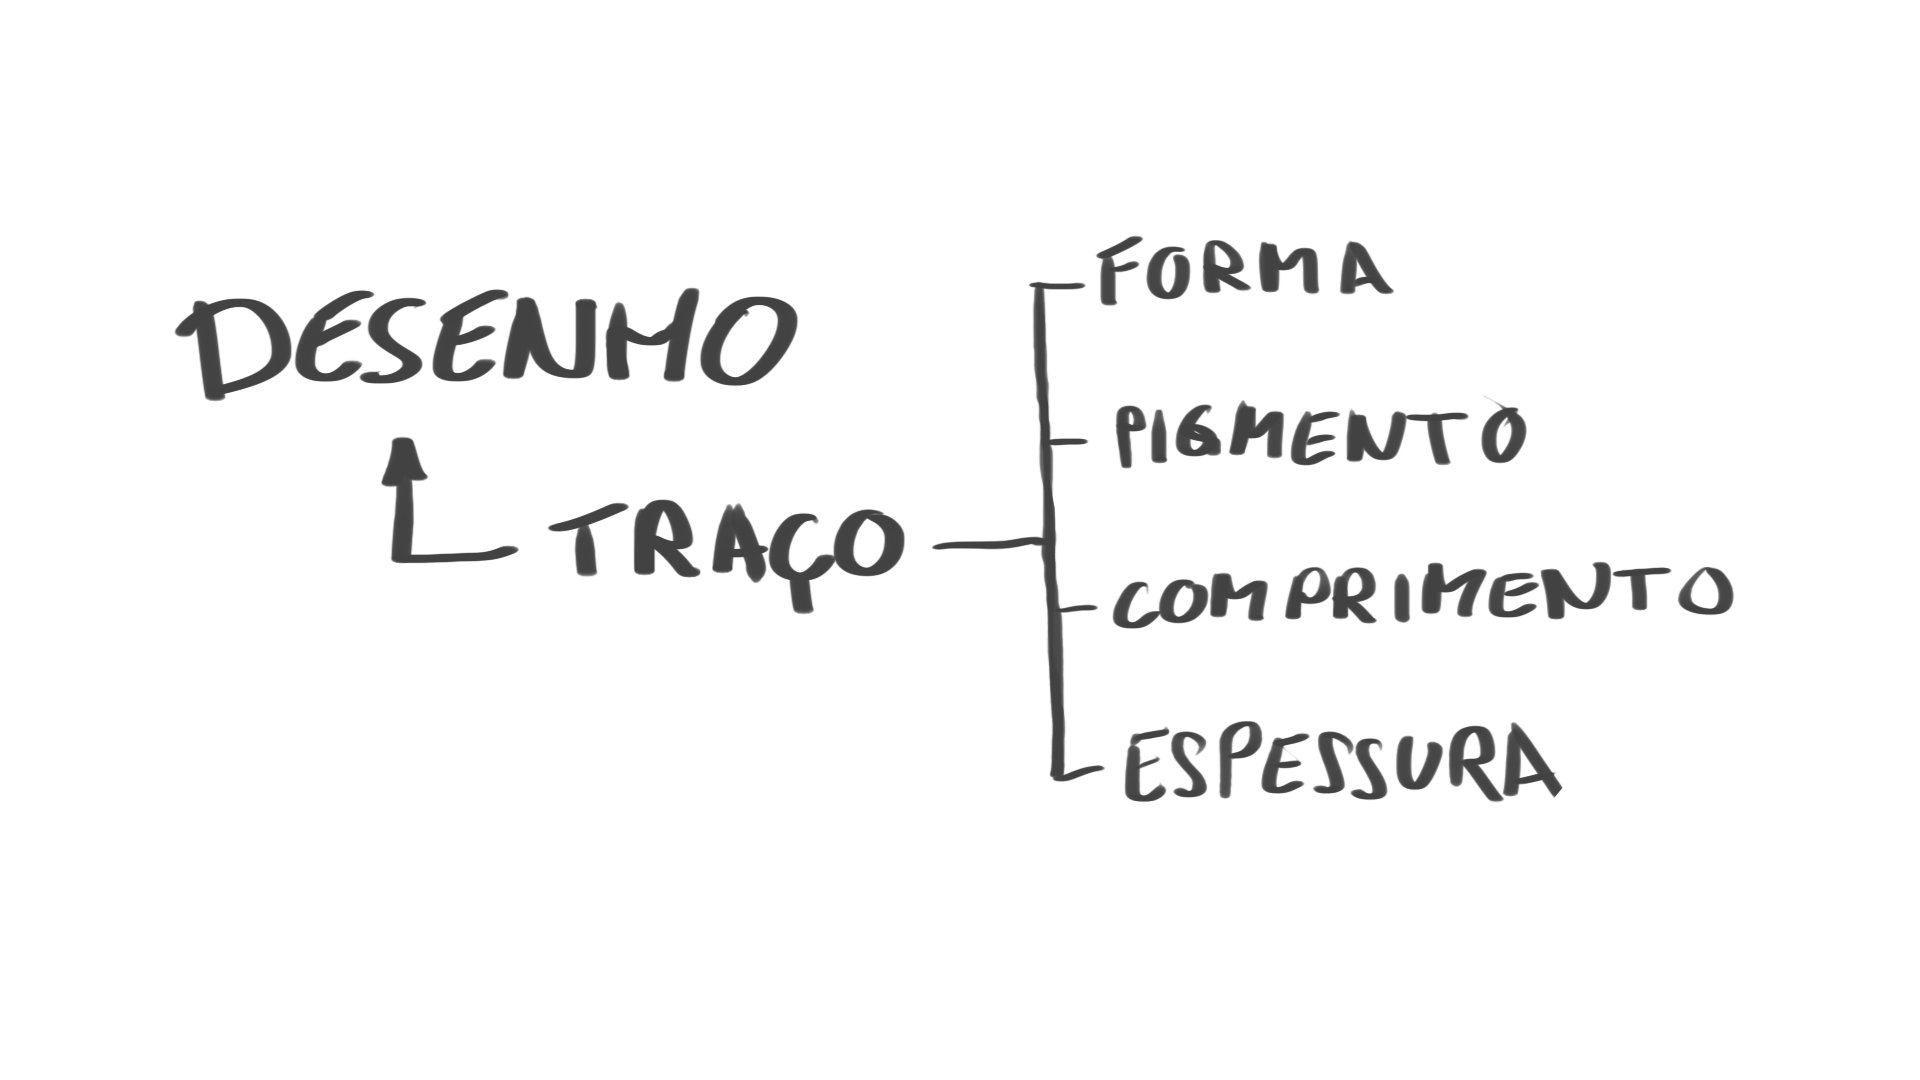 DESENHO
TRAÇO
FORMA
PIGMENTO
COMPRIMENTO
ESPESSURA